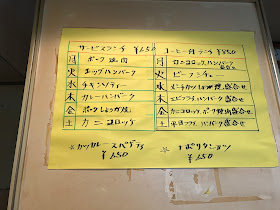 サービスランチ ¥650
月 ポーク焼肉
火 エッグハンバーグ
水 チキンソティー
木 カレーハンバーグ
金 ポークしょうが焼
土 カニコロッケ
コーヒー付ランチ ¥850
月 カニコロッケ、ハンバーグ
火 ビーフシチュー
水 メンチカツ、しょうが焼盛合せ
木 エビフライ、ハンバーグ盛合せ
金 カニコロッケ、ポーク焼肉盛合せ
土 ハンバーグ盛合せ
*カツカレースパゲティ
¥650
*ナポリタン
¥650